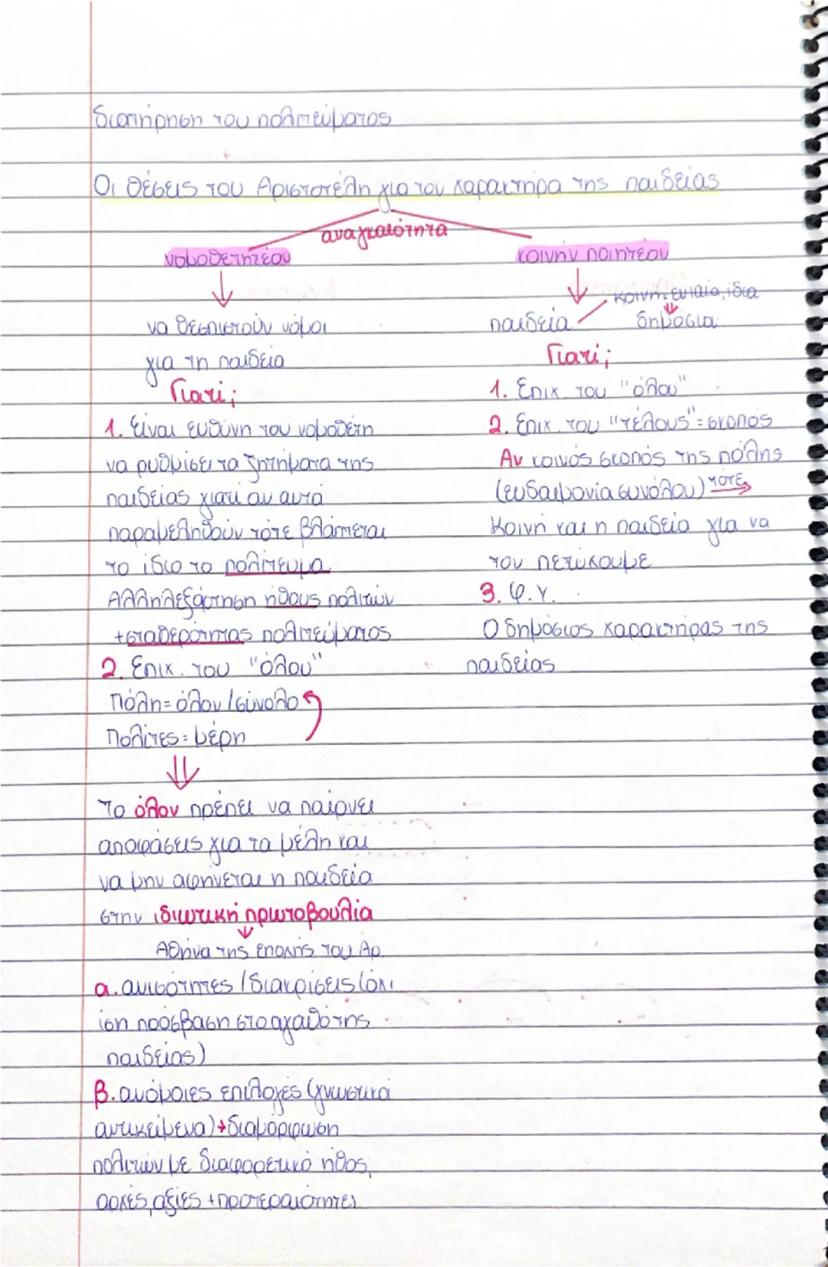 διατήρηση του πολιτεύματος
Οι θέσεις του Αριστοτέλη για τον χαρακτήρα της παιδείας
αναγκαιότητα
νομοθετητέον
να θεσπιστούν νόμοι
για τη παιδεία
Γιατί;
1. Είναι ευθύνη του νομοθέτη
να ρυθμίσει τα ζητήματα της
παιδείας γιατί αν αυτά
παραμεληθούν τότε βλάπτεται
το ίδιο το πολίτευμα
Αλληλεξάρτηση ήθους πολιτών
+σταθερότητας πολιτεύματος
2. Επιχ. του "όλου"
Πόλη=όλον/σύνολο
Πολίτες=μέρη
Το όλον πρέπει να παίρνει
αποφάσεις για τα μέλη και
να μην αφήνεται η παιδεία
στην ιδιωτική πρωτοβουλία
Αθήνα της εποχής του Αρ.
α. ανισότητες/διακρίσεις(όχι
ίση πρόσβαση στο αγαθό της
παιδείας)
β. ανόμοιες επιλογές(γνωστικά
αντικείμενα)+διαμόρφωση
πολιτών με διαφορετικό ήθος,
αρχές,αξίες+προτεραιότητες
κοινήν ποιητέον
κοινή=ενιαία,ίδια
παιδεία δημόσια
Γιατί;
1. Επιχ. του "όλου"
2. Επιχ. του "τέλους"=σκοπός
Αν κοινός σκοπός της πόλης
(ευδαιμονία συνόλου) τότε
κοινή και η παιδεία για να
τον πετύχουμε
3. φ.γ.
Ο δημόσιος χαρακτήρας της
παιδείας